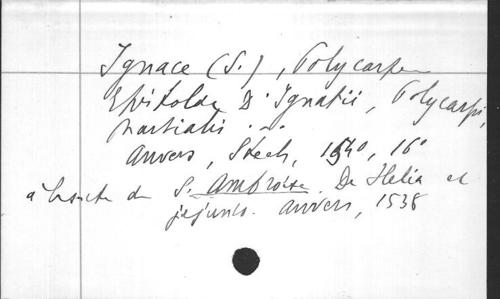 Ignace (S.), Polycarpe
Epistolae D. Ignatii, Polycarpi,
Martialis ...
Anvers, Steels, 1540, 16°
à la suite de S. Ambroise. De Helia et
jejunio. Anvers, 1538